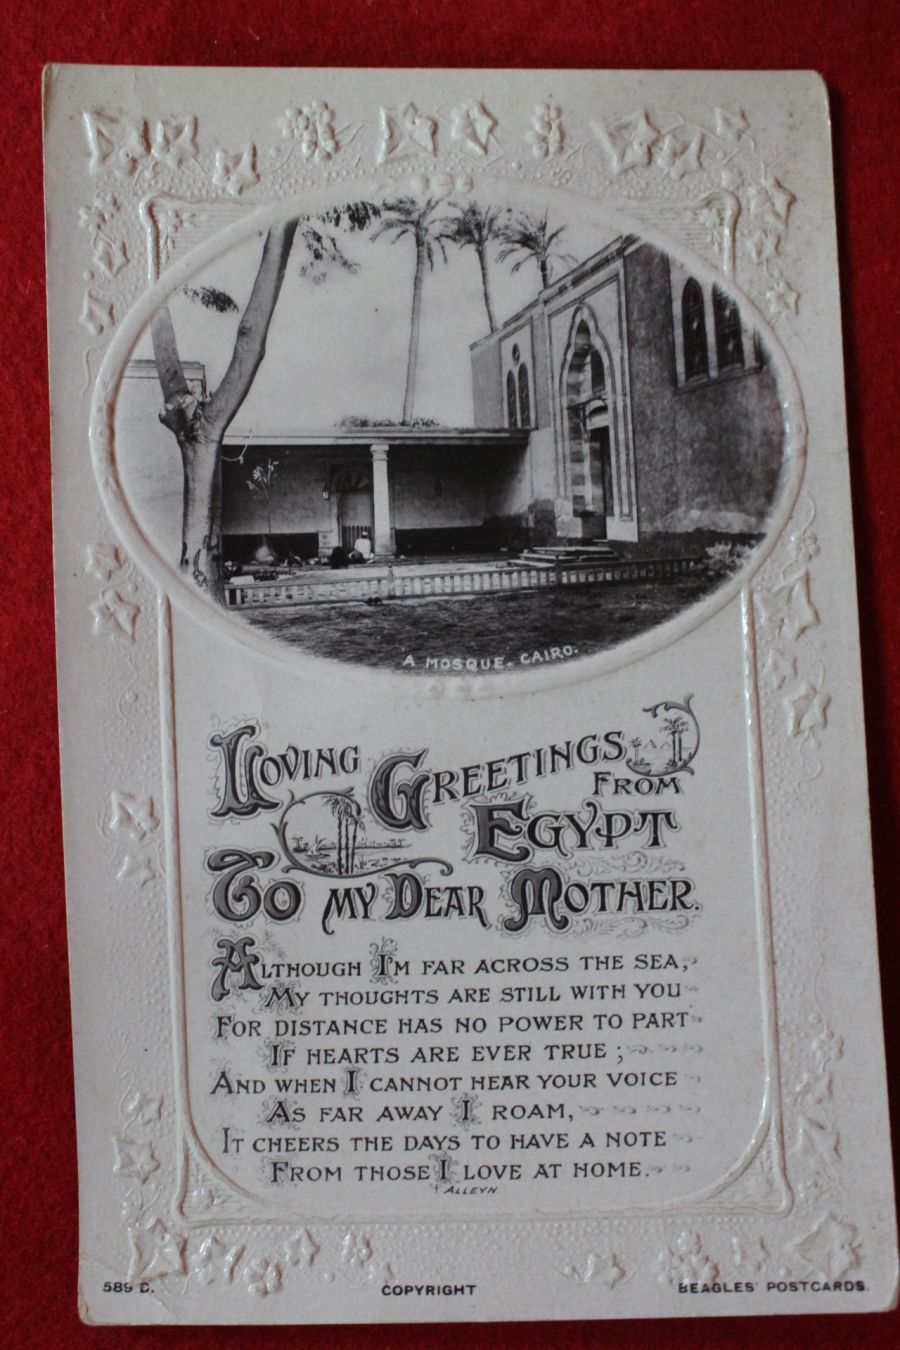 A MOSQUE. CAIRO.
LOVING GREETINGS
FROM
EGYPT
TO MY DEAR MOTHER.
ALTHOUGH I'M FAR ACROSS THE SEA,
MY THOUGHTS ARE STILL WITH YOU
FOR DISTANCE HAS NO POWER TO PART
IF HEARTS ARE EVER TRUE;
AND WHEN I CANNOT HEAR YOUR VOICE
AS FAR AWAY I ROAM,
IT CHEERS THE DAYS TO HAVE A NOTE
FROM THOSE I LOVE AT HOME.
ALLEYN
589 COPYRIGHT BEAGLES' POSTCARDS.